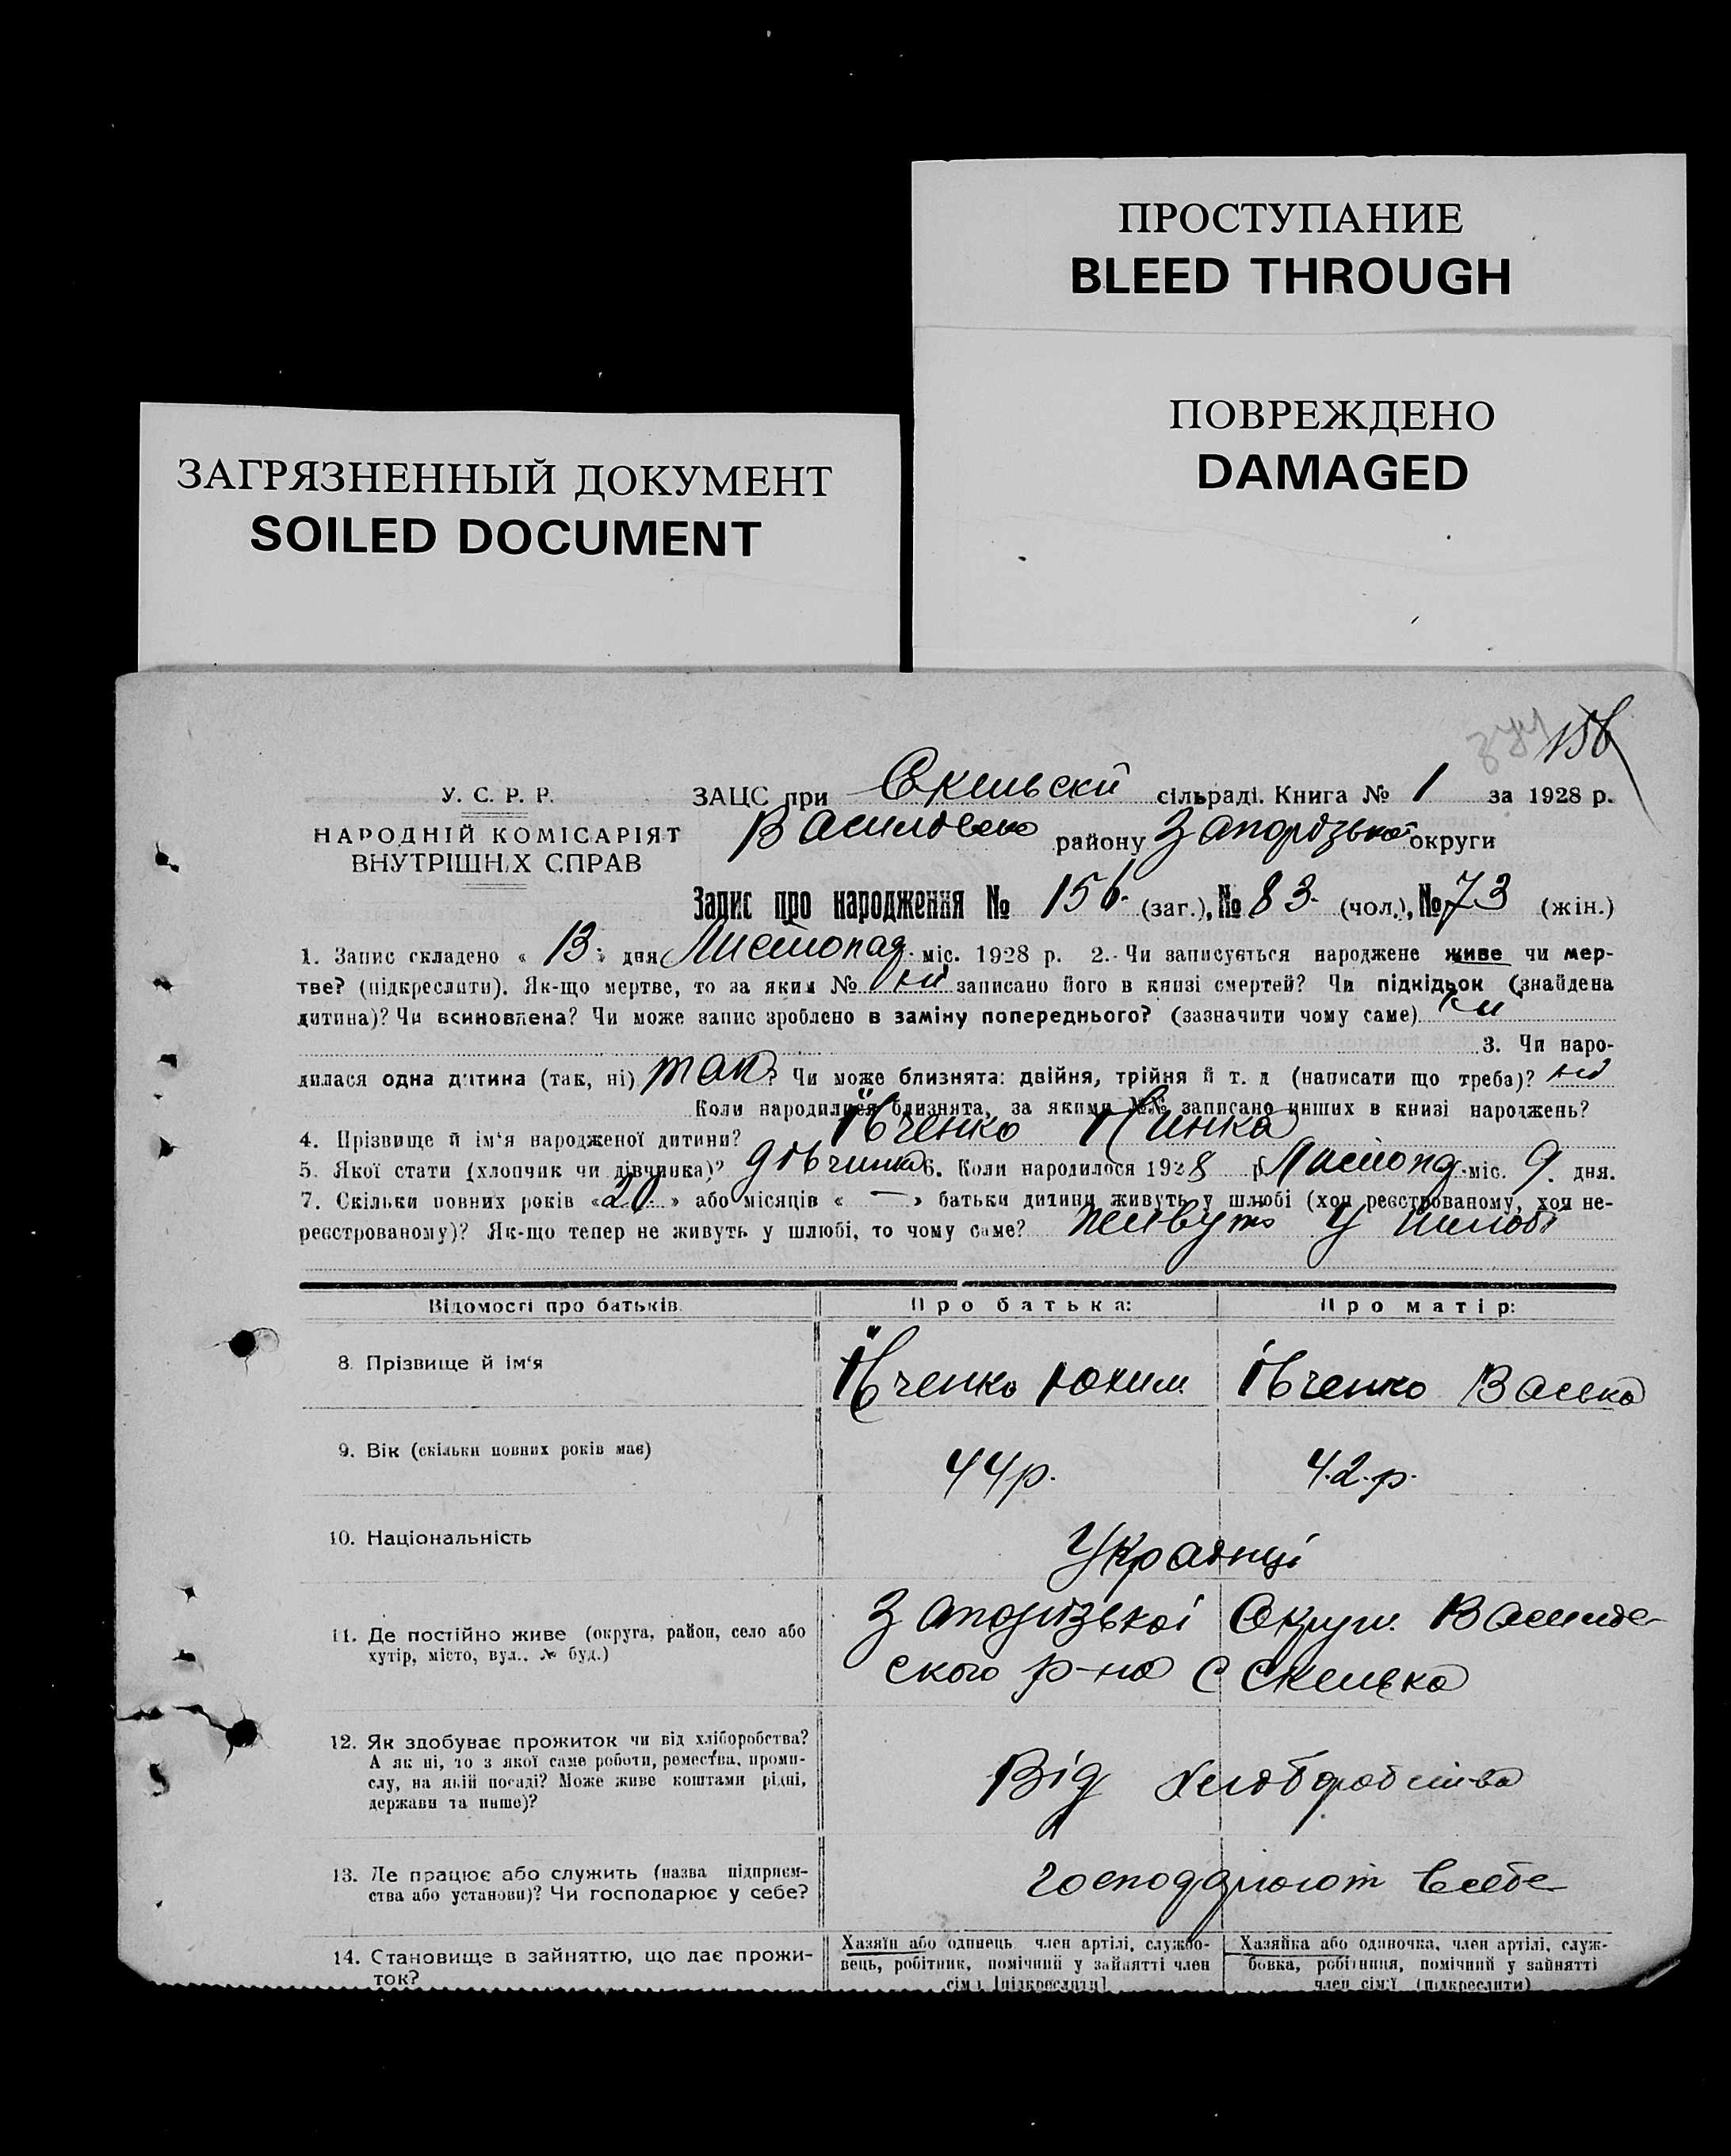 ПРОСТУПАНИЕ
BLEED THROUGH
ПОВРЕЖДЕНО
DAMAGED
ЗАГРЯЗНЕННЫЙ ДОКУМЕНТ
SOILED DOCUMENT
156
У. С. Р. Р.
НАРОДНІЙ КОМІСАРІЯТ
ВНУТРІШНІХ СПРАВ
ЗАЦС при Скельскій сільраді. Книга № 1 за 1928 р.
району Запорізької округи
Запис про народження № 156. (заг.), № 83. (чол.), № 73 (жін.)
1. Запис складено « 13 » дня Листопад. міс. 1928 р. 2. Чи записується народжене живе чи мер-
тве? (підкреслити). Як-що мертве, то за яким № ні записано його в книзі смертей? Чи підкідьок (знайдена
дитина)? Чи всиновлена? Чи може запис зроблено в заміну попереднього? (зазначити чому саме) ні
3. Чи наро-
дилася одна дитина (так, ні) так? Чи може близнята: двійня, трійня й т. д (написати що треба)? ні
Коли народилися близнята, за якими №№ записано инших в книзі народжень?
4. Прізвище й ім'я народженої дитини? Івченко Кинка
5. Якої стати (хлопчик чи дівчинка)? дівчинка 6. Коли народилося 1928 р. Листопд. міс. 9. дня.
7. Скільки повних років «20» або місяців « — » батьки дитини живуть у шлюбі (хоч реєстрованому, хоч не-
реєстрованому)? Як-що тепер не живуть у шлюбі, то чому саме? живуть у шлюбі
Відомості про батьків.
Про батька:
Про матір:
8. Прізвище й ім'я
Івченко Юхим
Івченко Васька
9. Вік (скільки повних років має)
44 р.
42. р.
10. Національність
Українці
11. Де постійно живе (округа, район, село або
хутір, місто, вул.. № буд.)
Запорізької Округи. Василів-
ского р-на С Скелька
12. Як здобуває прожиток чи від хліборобства?
А як ні, то з якої саме роботи, ремества, проми-
слу, на якій посаді? Може живе коштами рідні,
держави та инше)?
Від хліборобства
13. Де працює або служить (назва підприєм-
ства або установи)? Чи господарює у себе?
господарюют в себе
14. Становище в зайняттю, що дає прожи-
ток?
Хазяїн або одинець член артілі, службо-
вець, робітник, помічний у зайнятті член
сім'ї [підкреслити]
Хазяйка або одиночка, член артілі, служ-
бовка, робітниця, помічний у зайнятті
член сім'ї (підкреслити)